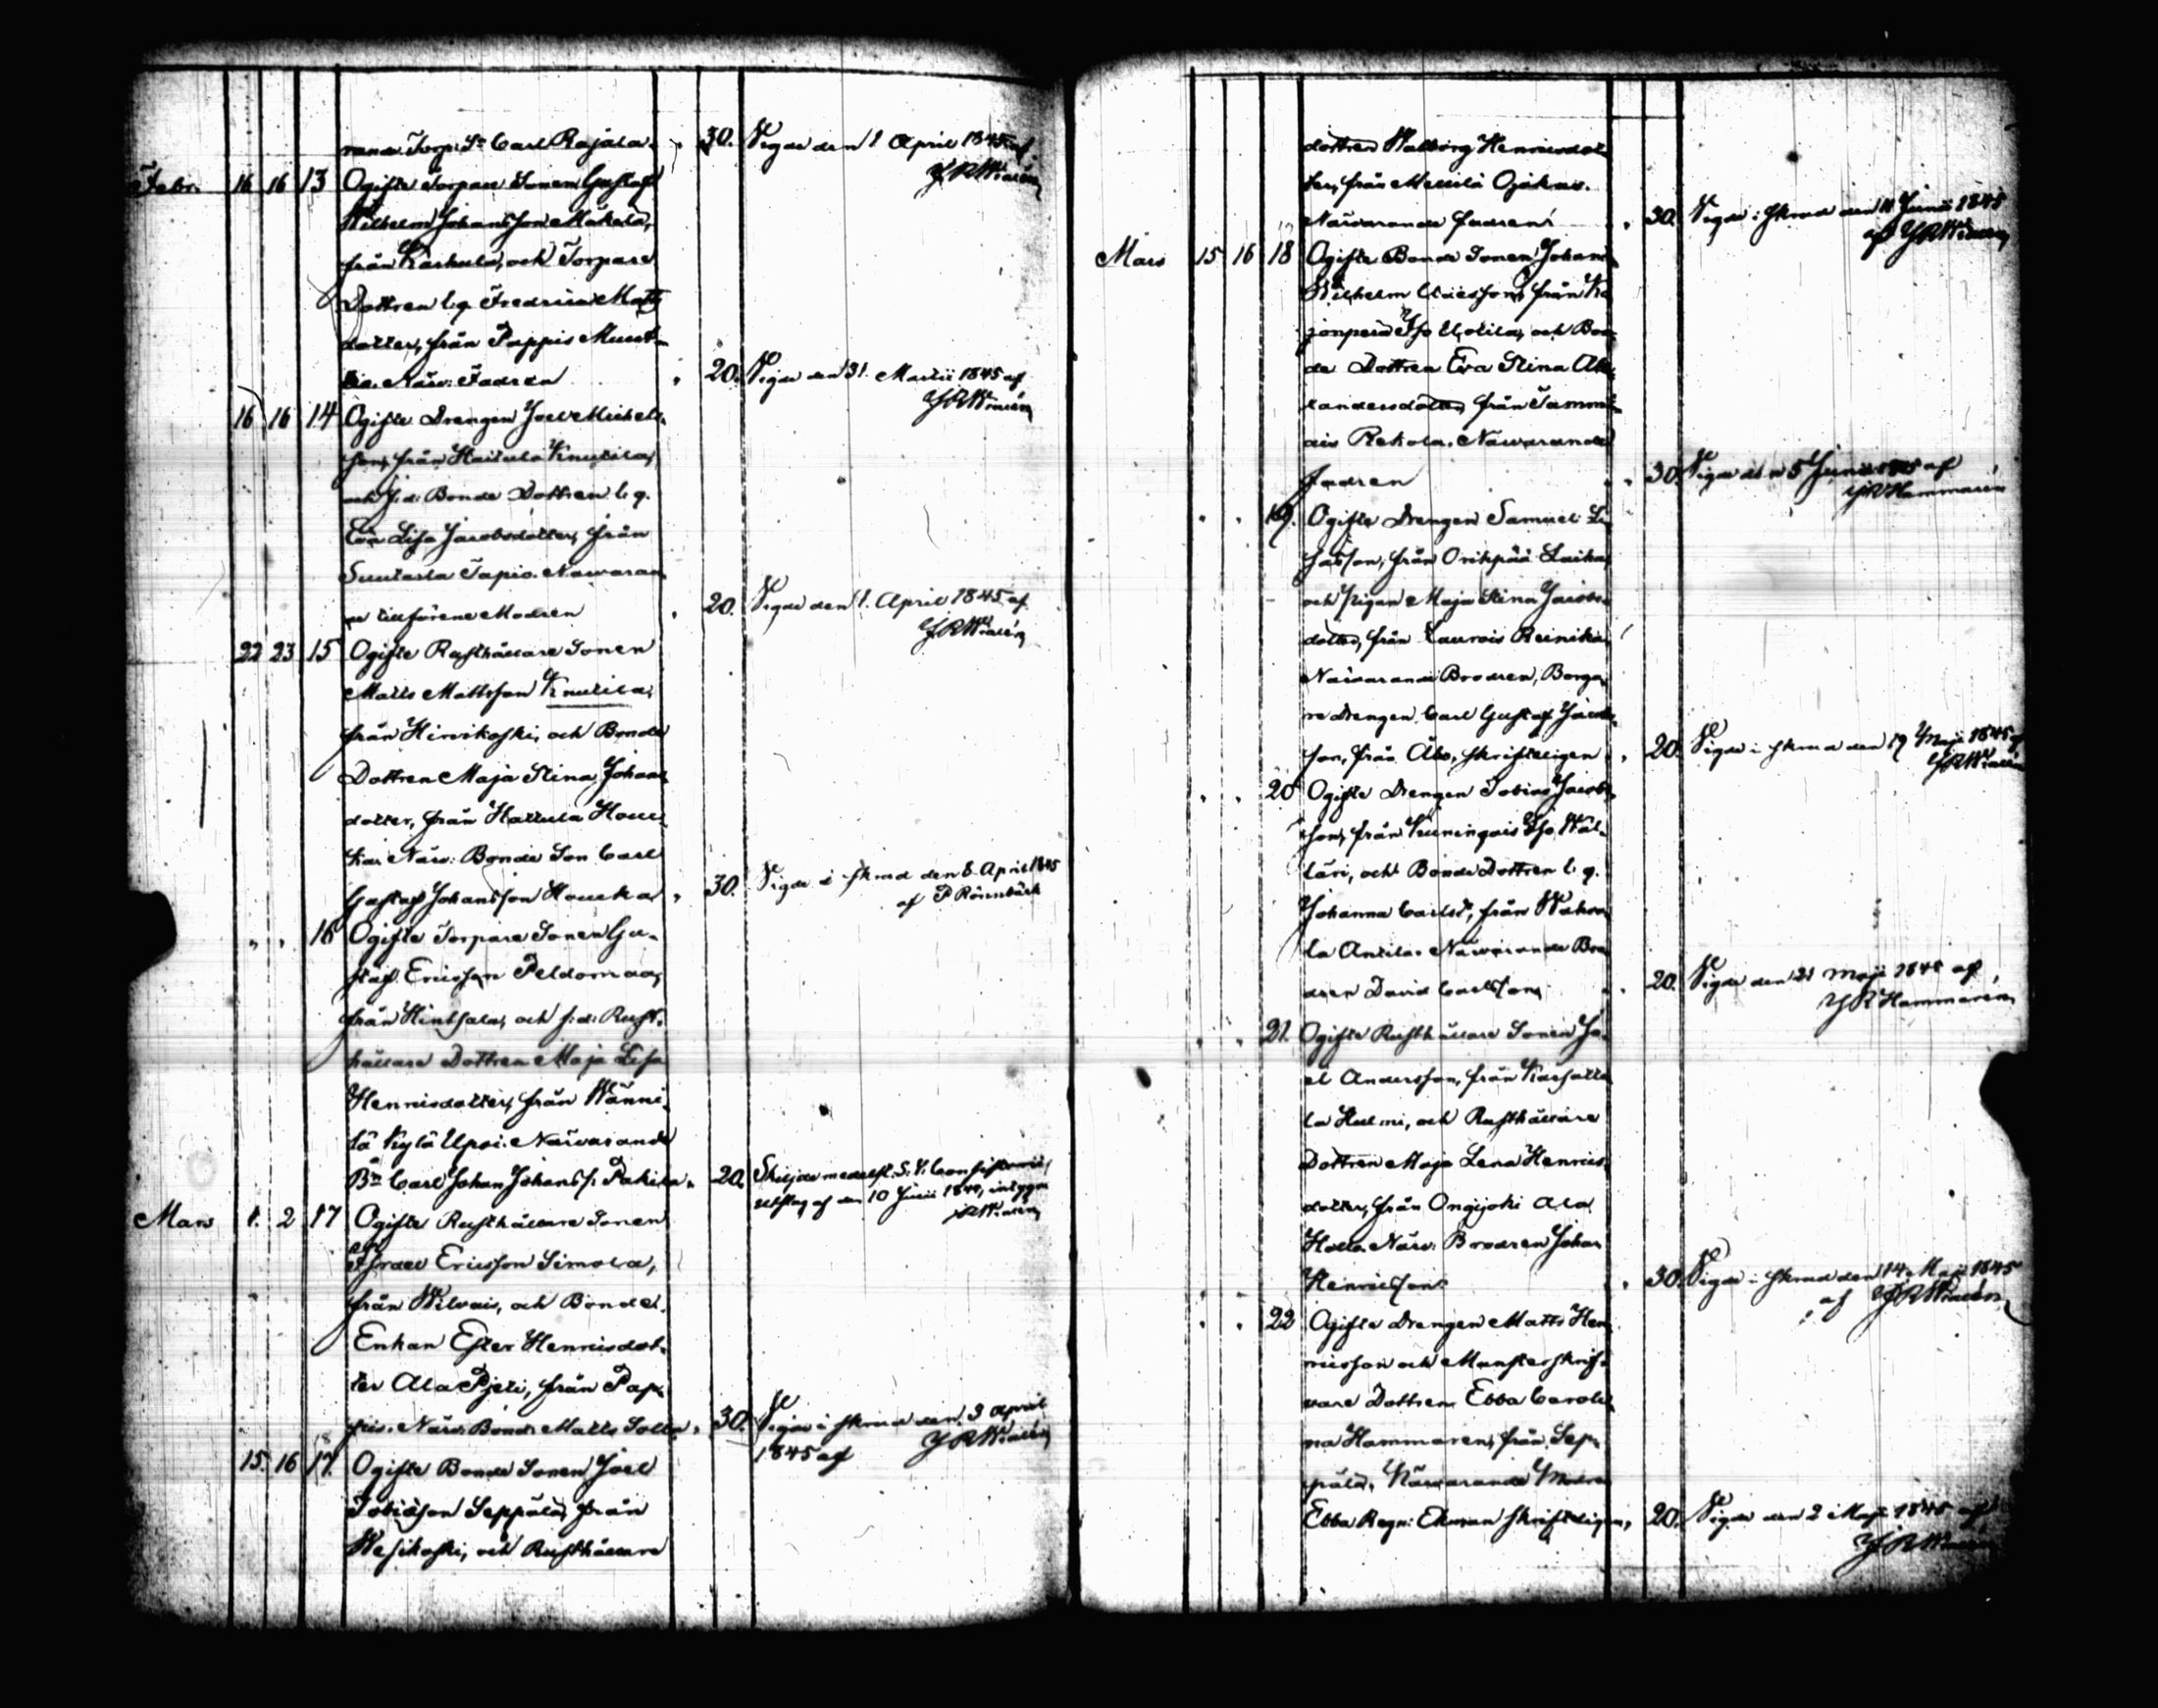 rande Torp: Sn Carl Rajala. " 30. Vigde den 1 April 1845 af
JRWinlén
Febr. 16 16 13 Ogifte Torpare Sonen Gustaf
Wilhelm Johansson Mäkelä,
från Karhula, och Torpare
Dottren l.q. Fredrica Matts
dotter, från Pappis Munt-
tis. Närv: Fadren " 20. Vigde den 31. Martii 1845 af
JRWinlén
16 16 14 Ogifte Drengen Joel Michels-
son, från Haitula Knutila,
och f.d. Bonde Dottren l.q.
Eva Lisa Jacobsdotter, från
Suutarla Tapio. Närvaran
de Modren " 20. Vigde den 1. April 1845 af
JRWinlén
22 23 15 Ogifte Rusthållare Sonen
Matts Mattsson Knutila,
från Hirvikoski, och Bonde
Dottren Maja Stina Johans
dotter, från Hattula Houc-
ka. Närv: Bonde Son Carl
Gustaf Johansson Houcka " 30. Vigde i skrud den 8. April 1845
af P Rönnbäck
" " 16 Ogifte Torpare Sonen Gu-
staf Ericsson Peldomaa,
från Hintsala, och f:d: Rust-
hållare Dottren Maja Lisa
Henricsdotter, från Wänni-
lä Kylä Upsi. Närvarande
Bn Carl Johan Johanss: Pakila " 20. Skiljde medelst. S. V. Consistorii
utslag af den 10 Junii 1840, intygar
JRWinlén
Mars 1. 2 17 Ogifte Rusthållare Sonen
Israel Ericsson Simola,
från Wilvais, och Bonde
Enkan Ester Henricsdot-
ter Ala Pjeti, från Pap-
pis. Närv: Bonde Matts Solla " 30. Vigde i skrud den 3 April
1845 af JRWinlén
15. 16 17. 18 Ogifte Bonde Sonen Joel
Tobiasson Seppälä, från
Wesikoski, och Rusthållare
dottren Walborg Henricsdot
ter, från Mellilä Ojakas.
Närvarande fadren " 30. Vigde i skrud den 11 Junii 1845
af JRWinlén
Mars 15 16 18 Ogifte Bonde Sonen Johan
Wilhelm från Ka
jonperä Iso Uotila, och Bon-
de Dottren Eva Stina Alex
andersdotter, från Tammi-
ais Rekola. Närvarande
Fadren " 30. Vigde den 5 Junii 1845 af
JRHammarén
" " 19. Ogifte Drengen Samuel
från Oripää Laiha
och Pigan Maja Stina Jacobs-
dotter, från Laurois Reinikka
Närvarande Brodren, Borga-
re drengen Carl Gustaf Jacobs-
son, från Åbo, skrifteligen " 20. Vigde i skrud den 19 Maji 1845 af
JRWinlén
" " 20 Ogifte Drengen Tobias Jacobs-
son, från Kuninqais Iso Wäl-
läri, och Bonde Dottren l.q.
Johanna Carlsd:, från Wahva
la Anttila. Närvarande Bro
dren David Carlsson " 20. Vigde den 21 Maji 1845 af
JRHammarén
" " 21. Ogifte Rusthållare Sonen Jo-
el Andersson, från Karhatta
la Hulmi, och Rusthållare
Dottren Maja Lena Henrics
dotter, från Ongijoki Ala
Holla. Närv: Brodren Johan
Henricsson " 30. Vigde i skrud den 14. Maji 1845
af JRWinlén
" " 22 Ogifte Drengen Matts Hen
ricsson och Munsterskrif-
vare Dottren Ebba Caroli
na Hammaren, från Sep-
pälä. Närvarande Modren
Ebba Regn: Ekman skrifteligen " 20. Vigde den 2 Maji 1845 af
JRWinlén